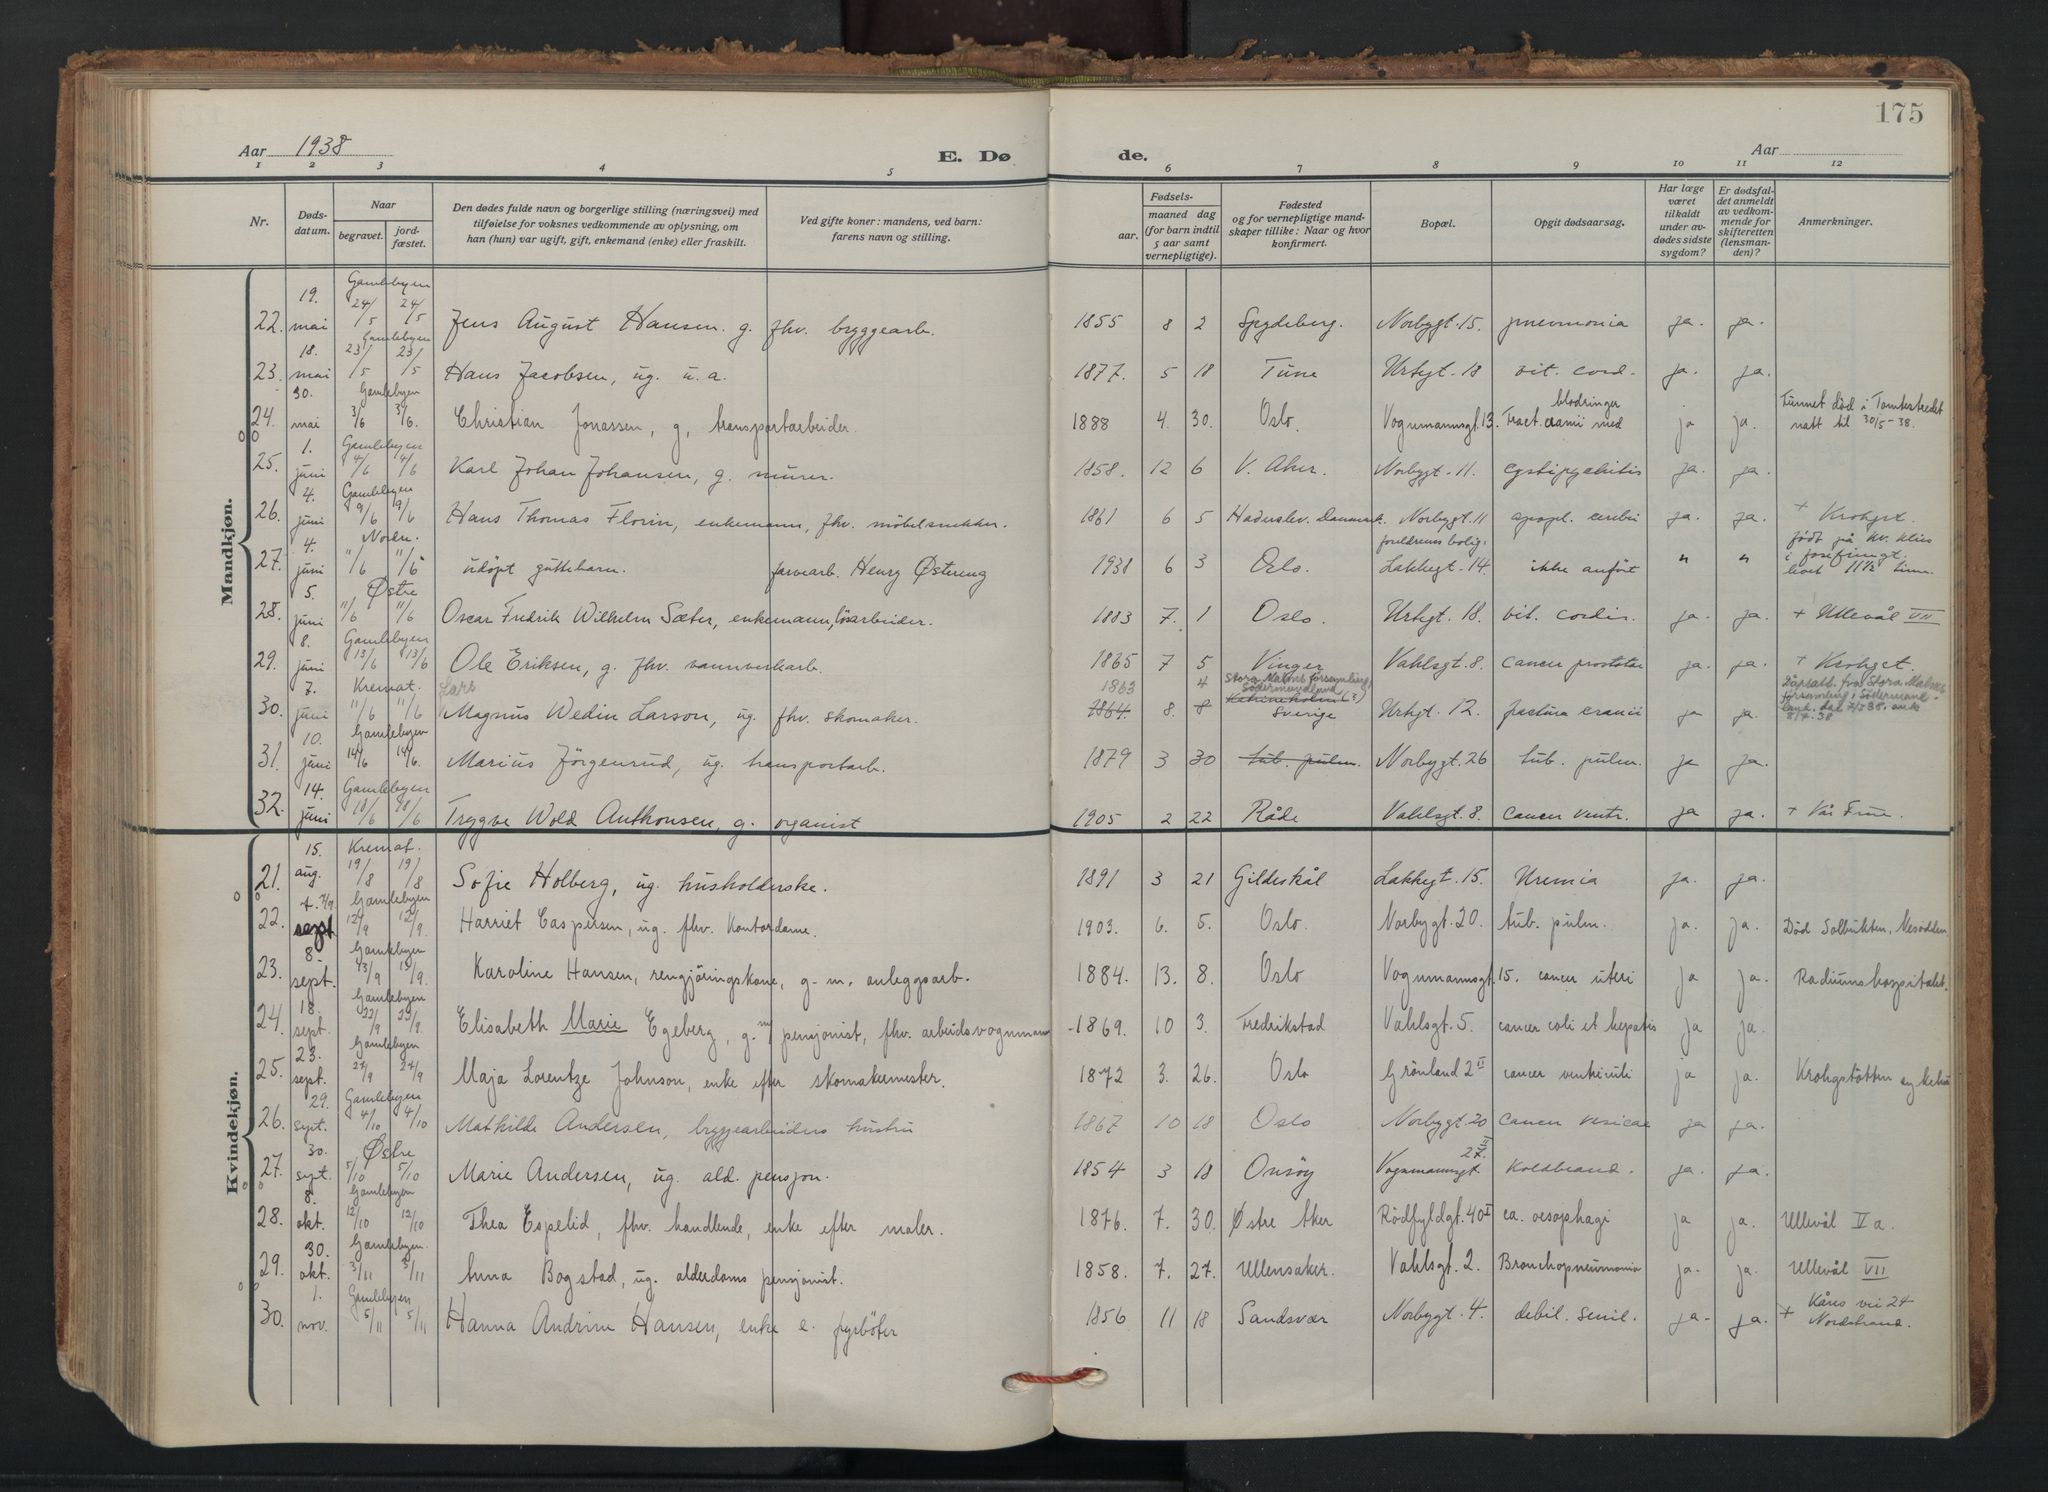 175
Aar 1938
E. Dø
de.
Aar
1 2 3 4 5 6 7 8 9 10 11 12
Nr.
Døds-
datum.
Naar
begravet.
jord-
fæstet.
Den dødes fulde navn og borgerlige stilling (næringsvei) med
tilføielse for voksnes vedkommende av oplysning, om
han (hun) var ugift, gift, enkemand (enke) eller fraskilt.
Ved gifte koner: mandens, ved barn:
farens navn og stilling.
Fødsels-
aar.
maaned dag
(for barn indtil
5 aar samt
vernepligtige).
Fødested
og for vernepligtige mand-
skaper tillike: Naar og hvor
konfirmert.
Bopæl.
Opgit dødsaarsag.
Har læge
været
tilkaldt
under av-
dødes sidste
sygdom?
Er dødsfal-
det anmeldt
av vedkom-
mende for
skifteretten
(lensman-
den)?
Anmerkninger.
Mandkjøn.
22. 19. mai Gamlebyen 24/5 24/5 Jens August Hansen. g. fhv. bryggearb. 1855 8 2 Spydeberg. Norbygt. 15. pneumonia ja. ja.
23. 18. mai Gamlebyen 23/5 23/5 Hans Jacobsen, ug. u.a. 1877. 5 18 Tune Urtegt. 18 vit. cord. ja. ja.
24. 30. mai Gamlebyen 3/6 3/6. Christian Jonassen, g, transportarbeider. 1888 4. 30. Oslo. Vognmannsgt. 13. Fract. cranii med blødninger ja ja. Funnet død i Tomtestredet
natt til 30/5-38.
25. 1. juni Gamlebyen 4/6 4/6 Karl Johan Johansen, g. murer. 1858. 12 6 V. Aker. Norbygt. 11. cystipyelitis ja. ja.
26. 4. juni Gamlebyen 9/6 9/6 Hans Thomas Florin, enkemann, fhv. møbelsnekker. 1861 6 5 Haderslev. Danmark. Norbygt. 11 apopl. cerebri ja. ja. + Krohgst.
27. 4. juni Nordre. 11/6 11/6 udøpt guttebarn. farvearb. Henry Østereng 1938 6 3 Oslo. foreldrenes bolig. Lakkegt. 14. ikke anført " " født på kv. klin
i Josefinegt.
levet 11½ time.
28. 5. juni Østre 11/6 11/6 Oscar Fredrik Wilhelm Sæter, enkemann, løsarbeider. 1883 7. 1 Oslo. Urtegt. 18. vit. cordis. ja. ja. + Ullevål VII
29. 8. juni Gamlebyen 13/6 13/6 Ole Eriksen, g. fhv. vannverksarb. 1865 7 5 Vinger Vahlsgt. 8. cancer prostatæ ja. ja. + Krohgst.
30. 7. juni Kremat. 11/6 11/6 Lars
Magnus Wedin Larson, ug. fhv. skomaker. 1863 1864. 8. 4 8 Stora Malms församling,
Södermanland
Katrineholm (?)
Sverige Urtegt. 12. fractura cranii ja ja. Dåpsatt. fra Stora Malms
församling, Södermand-
land. dat 7/7 38. ank
8/7. 38
31. 10. juni Gamlebyen 14/6 14/6. Marius Jörgensrud, ug. transportarb. 1879 3 30 tub. pulm. Norbygt. 26 tub. pulm. ja ja.
32. 14. juni Gamlebyen 18/6 18/6 Trygve Wold Anthonsen, g. organist 1905 2 22 Råde Vahlsgt. 8. cancer ventr. ja ja. + Vår Frue.
Kvindekjøn.
21. 15. aug. Kremat. 19/8 19/8 Sofie Holberg, ug. husholderske. 1891 3 21 Gildeskål Lakkegt. 15. Uremia ja. ja.
22. sept Gamlebyen 12/9 12/9. Harriet Caspersen, ug. fhv. Kontordame. 1903. 6. 5. Oslo. Norbygt. 20. tub. pulm. ja. ja. Død Solbukten, Nesodden
23. 8. sept. Gamlebyen 13/9 13/9. Karoline Hansen, rengjøringskone, g. m. anleggsarb. 1884. 13. 8. Oslo Vognmannsgt. 15. cancer uteri ja ja. Radiumshospitalet.
24. 18. sept. Gamlebyen 22/9 23/9. Elisabeth Marie Egeberg, g. m/ pensjonist, fhv. arbeidsvognmann 1869. 10 3. Fredrikstad Vahlsgt. 5. cancer coli et hepatis ja ja.
25. 23. sept. Gamlebyen 27/9 27/9 Maja Lorentze Johnson, enke efter skomakermester. 1872 3. 26. Oslo Grönland 2 II cancer ventriculi ja ja. Krohgstötten sykehus
26. 29. sept. Gamlebyen 4/10 4/10 Mathilde Andersen, bryggearbeiders hustru 1867 10 18 Oslo Norbygt. 20 cancer vesicae ja ja.
27. 30. sept. Østre 5/10 5/10 Marie Andersen, ug. ald. pensjon. 1854 3 18 Onsöy Vognmannsgt 27. II Koldbrand. ja. ja.
28. 8. okt. Gamlebyen 12/10 12/10 Thea Espelid, fhv. handlende, enke efter maler. 1876. 7. 30. Østre Aker Rödfyldgt. 40 I ca. oesophagi ja ja. Ullevål V a.
29. 30. okt. Gamlebyen. 3/11 3/11 Anna Bogstad, ug. alderdoms pensjonist. 1858. 7. 27. Ullensaker. Vahlsgt. 2. Bronchopneumonia ja. ja. Ullevål VII
30. 1. nov. Gamlebyen 5/11 5/11 Hanna Andrine Hansen, enke e. fyrböter 1856 11 18 Sandsvær Norbygt. 4. debil. senil. ja. ja. + Kåres vei 24
Nordstrand.